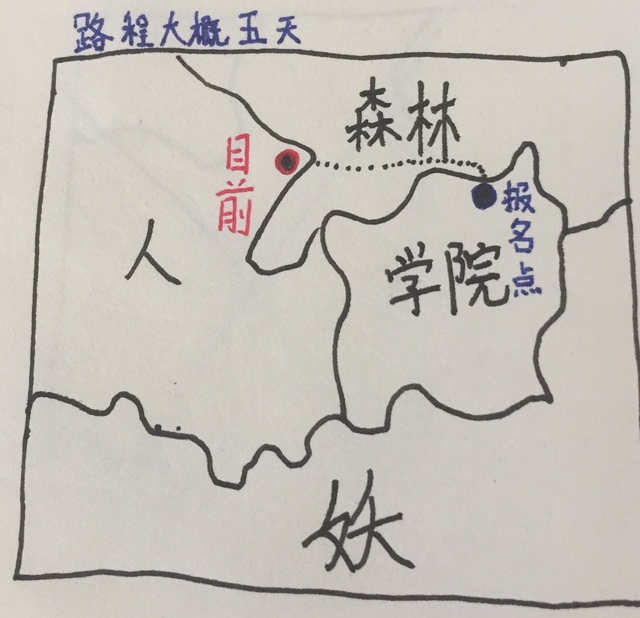 路程大概五天
森林
目前
报名点
人
学院
妖